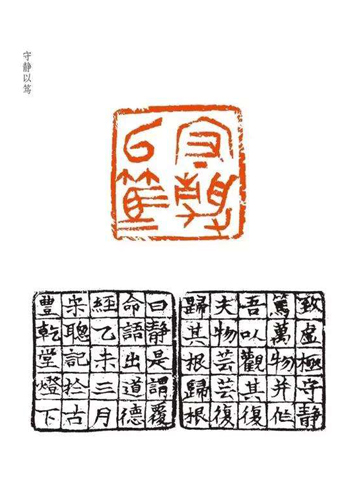 守静以笃
守靜
以篤
致虛極守靜
篤萬物并作
吾以觀其復
夫物芸芸復
歸其根歸根
曰静是謂覆
命語出道德
經乙未三月
宋聰記於古
豐乾堂燈下